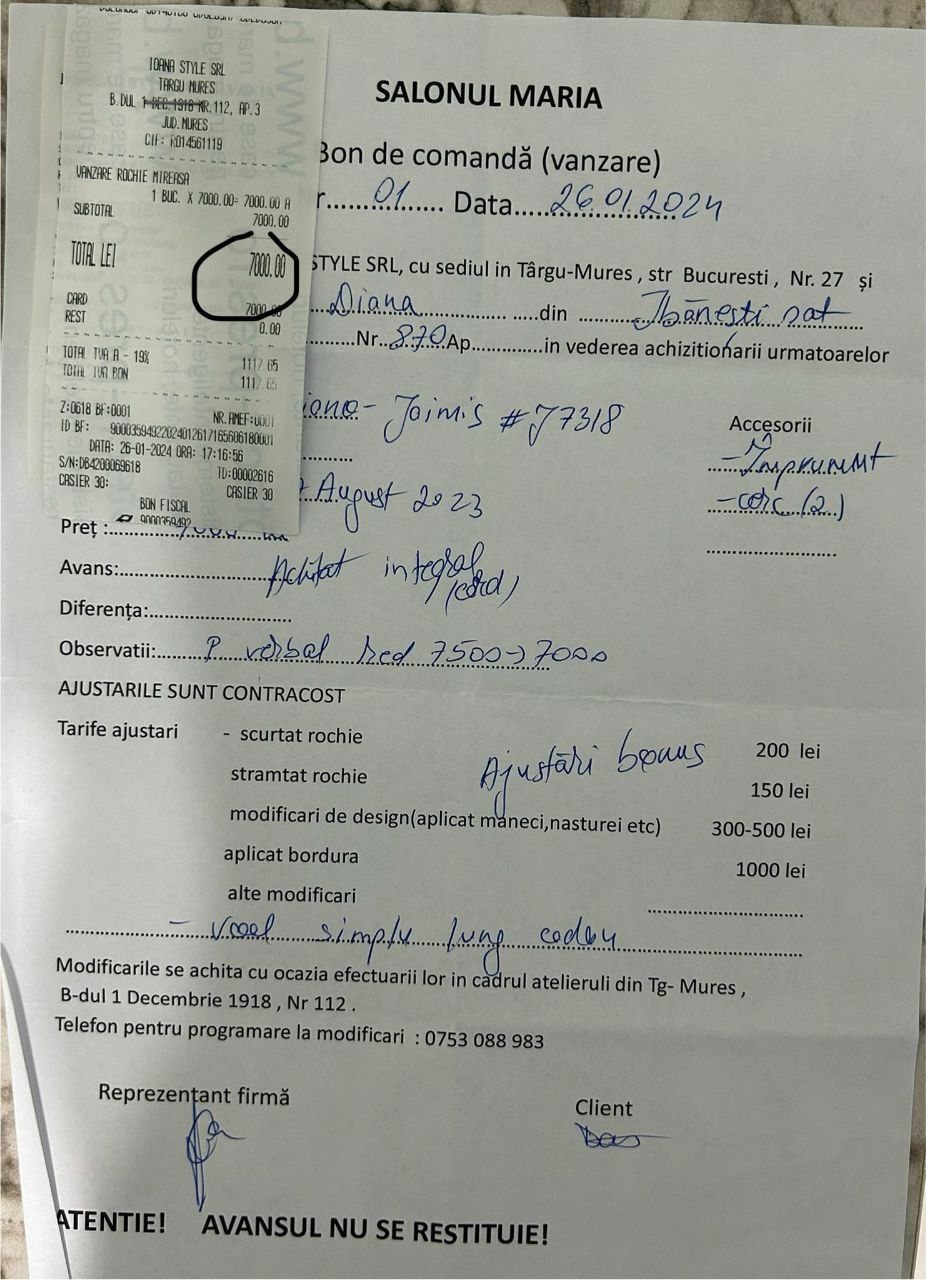 IOANA STYLE SRL
TARGU MURES
B.DUL 1 DEC.1918 NR.112, AP.3
JUD.MURES
CIF: RO14561119
VANZARE ROCHIE MIREASA
1 BUC. X 7000.00= 7000.00 A
SUBTOTAL 7000.00
TOTAL LEI 7000.00
CARD 7000.00
REST 0.00
TOTAL TVA A - 19% 1117.65
TOTAL TVA BON 1117.65
Z:0618 BF:0001 NR.AMEF:0001
ID BF: 90003594922024012617165606180001
DATA: 26-01-2024 ORA: 17:16:56
S/N:DB4200069618 ID:00002616
CASIER 30: CASIER 30
BON FISCAL
9000359492
SALONUL MARIA
Bon de comandă (vanzare)
01 Data 26.01.2024
STYLE SRL, cu sediul in Târgu-Mures , str Bucuresti , Nr. 27 și
Diana din Ibănești sat
Nr. 870 Ap. in vederea achizitionarii urmatoarelor
#J7318
Accesorii
- Împrumut
August 2023
- cerc (2)
Preț :
Avans: Achitat integral (card)
Diferența:
Observatii: P verbal red 7500->7000
AJUSTARILE SUNT CONTRACOST
Tarife ajustari - scurtat rochie 200 lei
Ajustări bonus
stramtat rochie 150 lei
modificari de design(aplicat maneci,nasturei etc) 300-500 lei
aplicat bordura 1000 lei
alte modificari
- voal simplu lung cadou
Modificarile se achita cu ocazia efectuarii lor in cadrul atelieruli din Tg- Mures ,
B-dul 1 Decembrie 1918 , Nr 112 .
Telefon pentru programare la modificari : 0753 088 983
Reprezentant firmă
Client
ATENTIE! AVANSUL NU SE RESTITUIE!